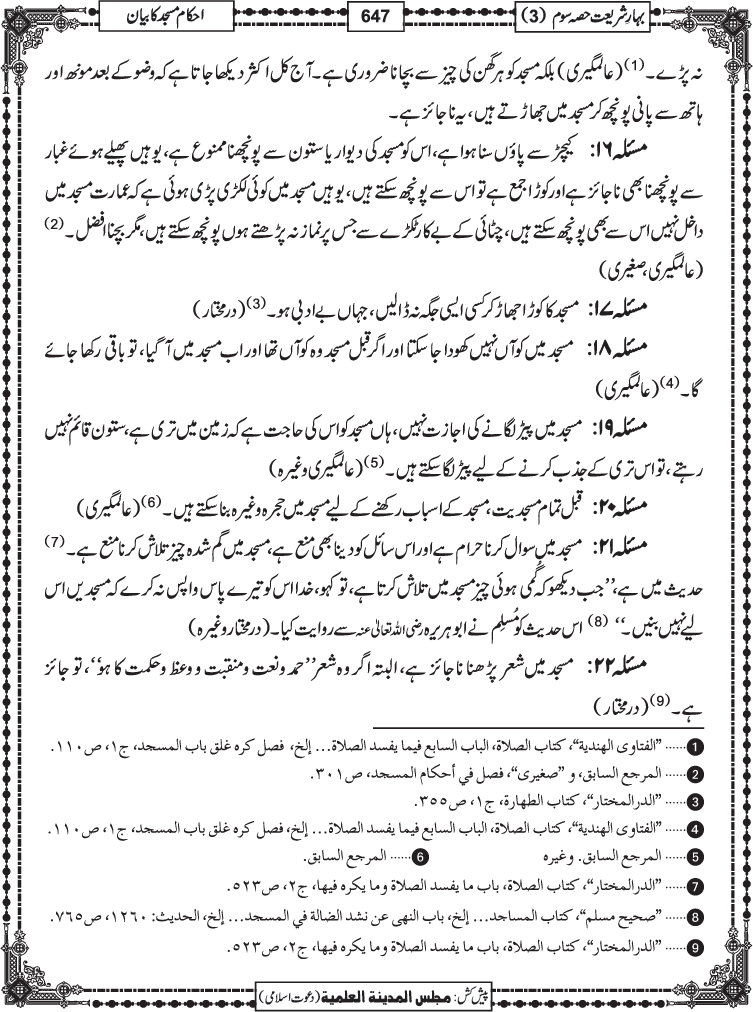 بہارِ شریعت حصہ سوم (3)
647
احکام مسجد کا بیان
نہ پڑے۔(1) (عالمگیری) بلکہ مسجد کو ہر گھن کی چیز سے بچانا ضروری ہے۔ آج کل اکثر دیکھا جاتا ہے کہ وضو کے بعد مونھ اور
ہاتھ سے پانی پونچھ کر مسجد میں جھاڑتے ہیں، یہ ناجائز ہے۔
مسئلہ ۱۶: کیچڑ سے پاؤں سنا ہوا ہے، اس کو مسجد کی دیوار یا ستون سے پونچھنا ممنوع ہے، یوہیں پھیلے ہوئے غبار
سے پونچھنا بھی ناجائز ہے اور کوڑا جمع ہے تو اس سے پونچھ سکتے ہیں، یوہیں مسجد میں کوئی لکڑی پڑی ہوئی ہے کہ عمارت مسجد میں
داخل نہیں اس سے بھی پونچھ سکتے ہیں، چٹائی کے بے کار ٹکڑے سے جس پر نماز نہ پڑھتے ہوں پونچھ سکتے ہیں، مگر بچنا افضل۔(2)
(عالمگیری، صغیری)
مسئلہ ۱۷: مسجد کا کوڑا جھاڑ کر کسی ایسی جگہ نہ ڈالیں، جہاں بے ادبی ہو۔(3) (درمختار)
مسئلہ ۱۸: مسجد میں کوآں نہیں کھودا جا سکتا اور اگر قبل مسجد وہ کوآں تھا اور اب مسجد میں آگیا، تو باقی رکھا جائے
گا۔(4) (عالمگیری)
مسئلہ ۱۹: مسجد میں پیڑ لگانے کی اجازت نہیں، ہاں مسجد کو اس کی حاجت ہے کہ زمین میں تری ہے، ستون قائم نہیں
رہتے، تو اس تری کے جذب کرنے کے لیے پیڑ لگا سکتے ہیں۔(5) (عالمگیری وغیرہ)
مسئلہ ۲۰: قبل تمام مسجدیت، مسجد کے اسباب رکھنے کے لیے مسجد میں حجرہ وغیرہ بنا سکتے ہیں۔(6) (عالمگیری)
مسئلہ ۲۱: مسجد میں سوال کرنا حرام ہے اور اس سائل کو دینا بھی منع ہے، مسجد میں گم شدہ چیز تلاش کرنا منع ہے۔(7)
حدیث میں ہے، ’’جب دیکھو کہ گمی ہوئی چیز مسجد میں تلاش کرتا ہے، تو کہو، خدا اس کو تیرے پاس واپس نہ کرے کہ مسجدیں اس
لیے نہیں بنیں۔‘‘ (8) اس حدیث کو مُسلِم نے ابوہریرہ رضی اللہ تعالیٰ عنہ سے روایت کیا۔ (درمختار وغیرہ)
مسئلہ ۲۲: مسجد میں شعر پڑھنا ناجائز ہے، البتہ اگر وہ شعر ’’حمد و نعت و منقبت و وعظ و حکمت کا ہو‘‘، تو جائز
ہے۔(9) (درمختار)
1 ...... "الفتاوی الهندية"، كتاب الصلاة، الباب السابع فيما يفسد الصلاة... إلخ، فصل كره غلق باب المسجد، ج١، ص١١٠.
2 ...... المرجع السابق، و "صغیری"، فصل في أحكام المسجد، ص٣٠١.
3 ...... "الدرالمختار"، كتاب الطهارة، ج١، ص٣٥٥.
4 ...... "الفتاوی الهندية"، كتاب الصلاة، الباب السابع فيما يفسد الصلاة... إلخ، فصل كره غلق باب المسجد، ج١، ص١١٠.
5 ...... المرجع السابق. وغيره 6 ...... المرجع السابق.
7 ...... "الدرالمختار"، كتاب الصلاة، باب ما يفسد الصلاة وما يكره فيها، ج٢، ص٥٢٣.
8 ...... "صحيح مسلم"، كتاب المساجد... إلخ، باب النهی عن نشد الضالة في المسجد... إلخ، الحديث: ١٢٦٠، ص٧٦٥.
9 ...... "الدرالمختار"، كتاب الصلاة، باب ما يفسد الصلاة وما يكره فيها، ج٢، ص٥٢٣.
پیش کش: مجلس المدینة العلمیة (دعوت اسلامی)